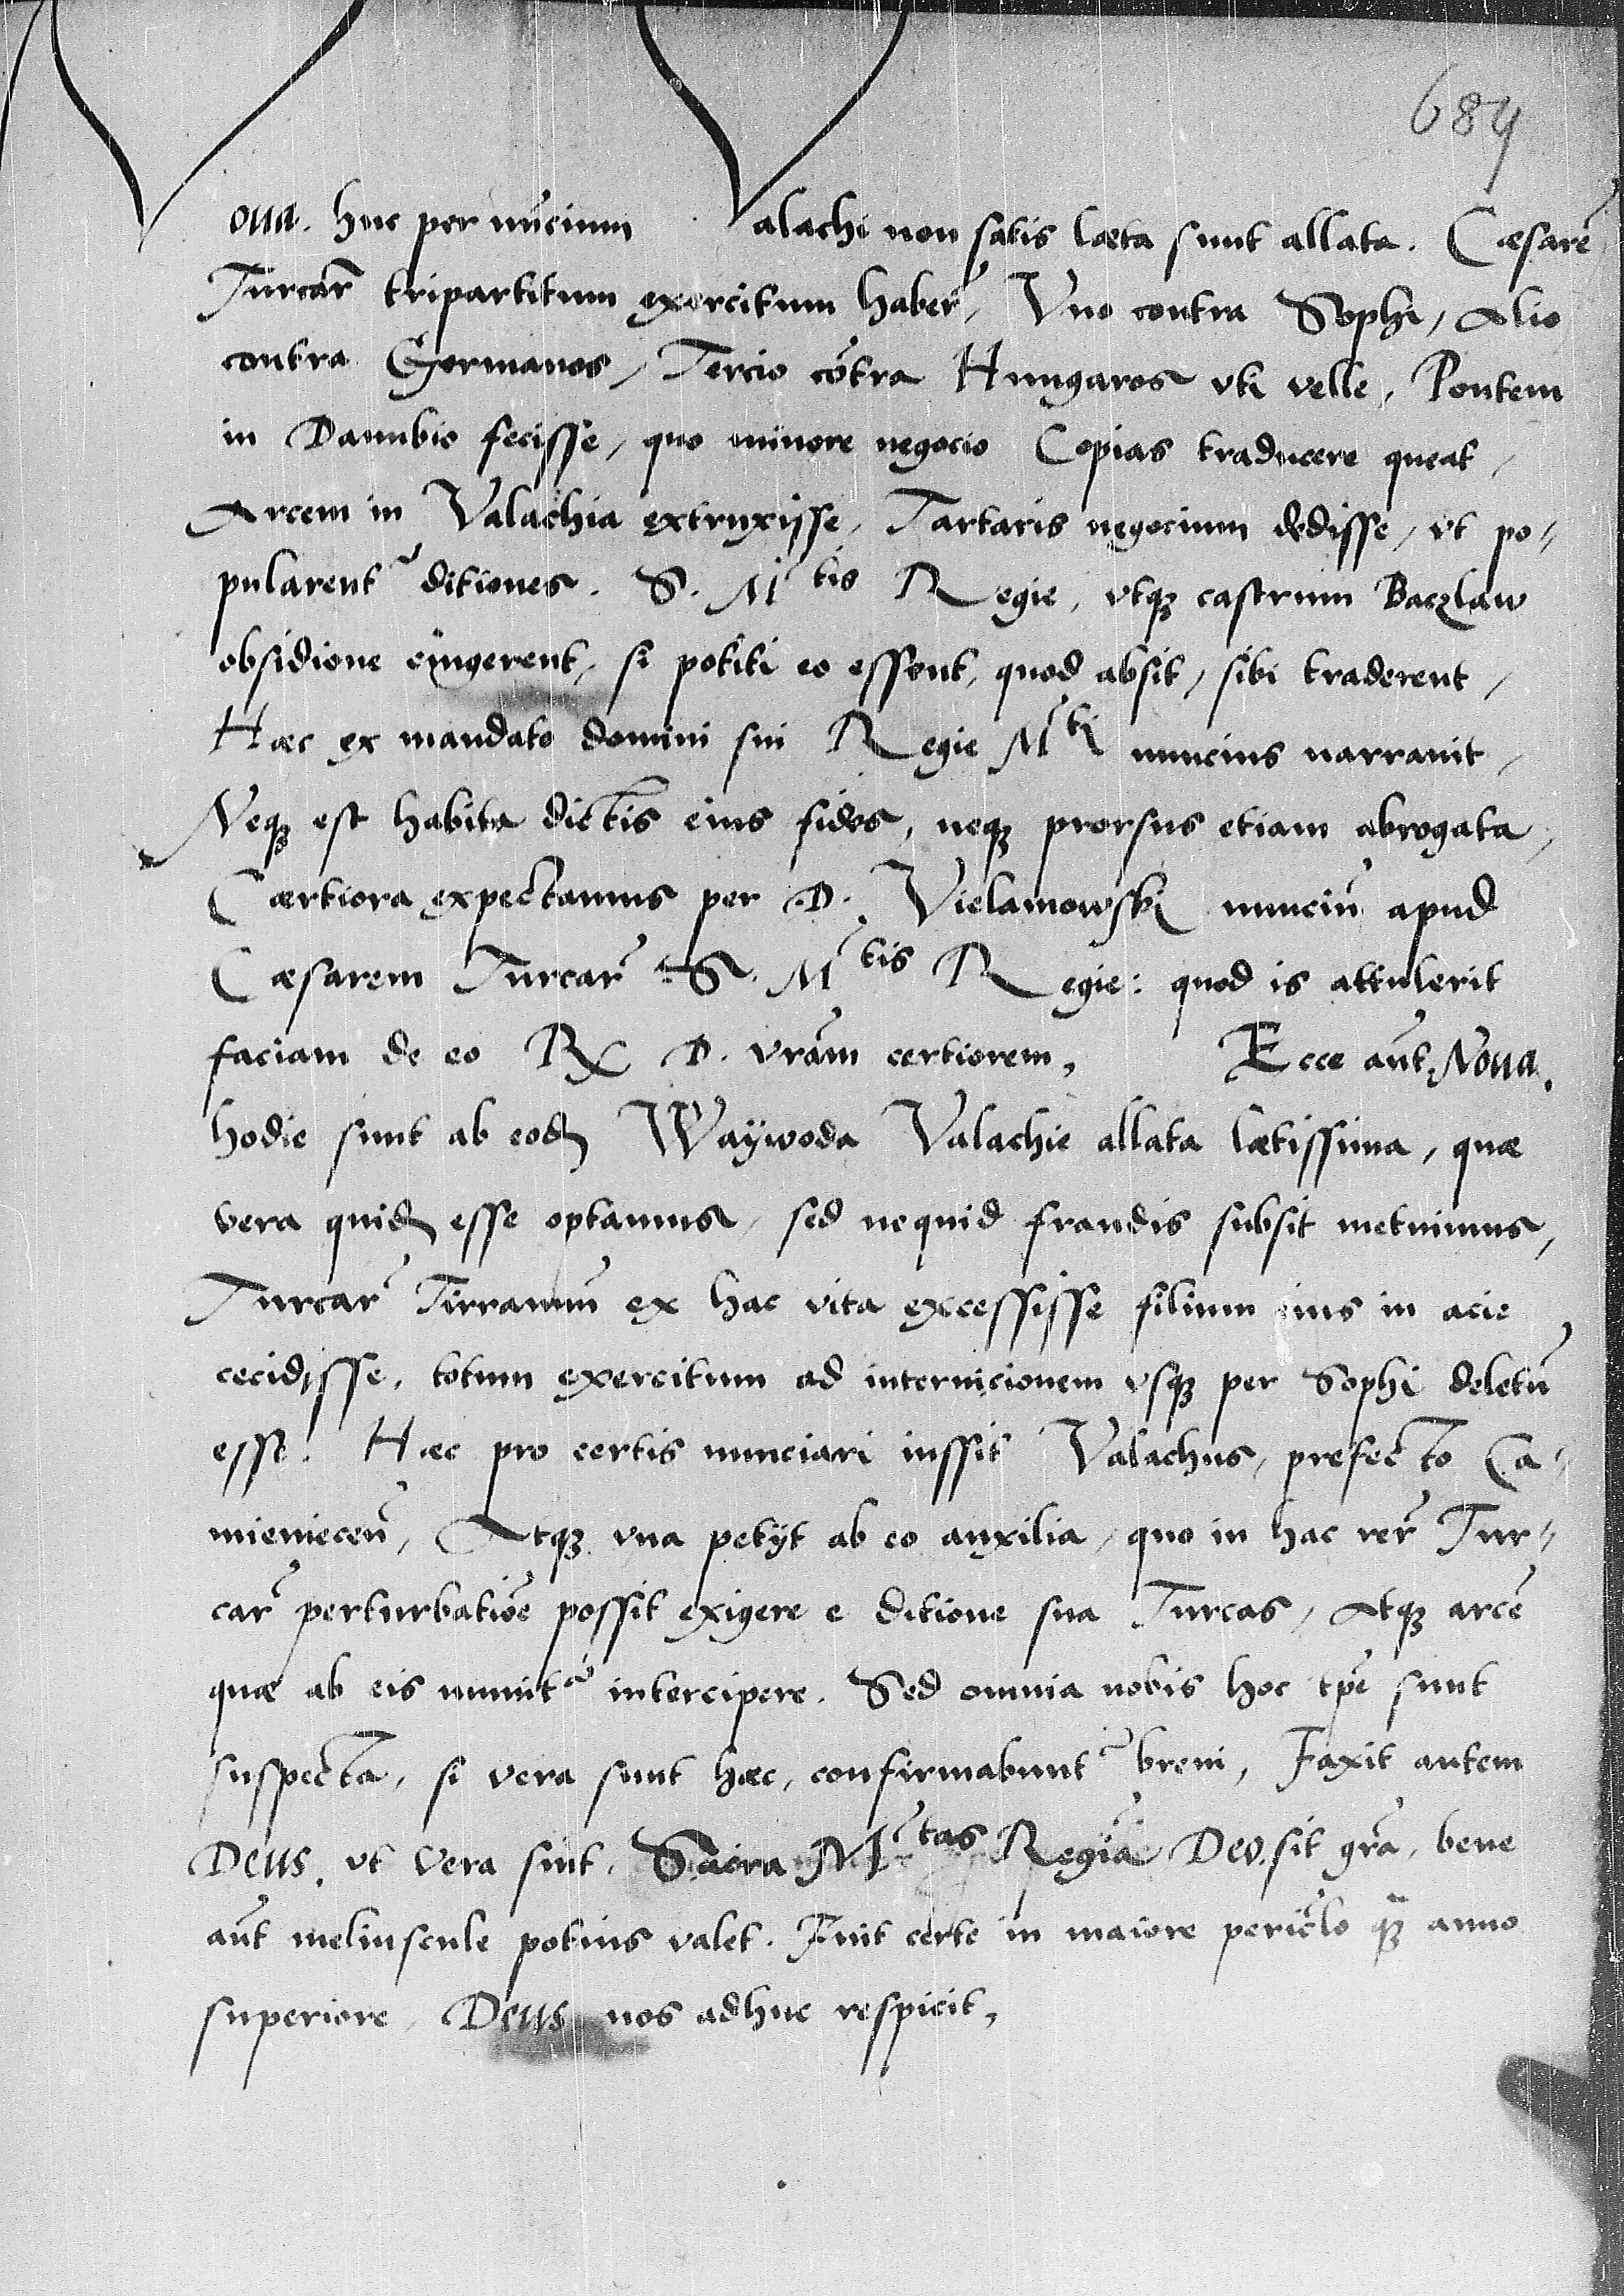 684
Noua. huc per nuncium Valachi non satis læta sunt allata. Cæsarē
Turcar̄ tripartitum exercitum haber̄, Vno contra Sophi, Alio
contra Germanos, Tercio cōtra Hungaros vti velle, Pontem
in Danubio fecisse, quo minore negocio Copias traducere queat,
Arcem in Valachia extruxisse, Tartaris negocium dedisse, vt po-
pularent᷑ ditiones. S. Mtis Regie, vtqꝫ castrum Baczlaw
obsidione cīngerent, si potiti eo essent, quod absit, sibi traderent,
Hæc ex mandato domini sui Regie Mti nuncius narrauit,
Neqꝫ est habita dictis eius fides, neqꝫ prorsus etiam abrogata,
Cærtiora expectamus per D. Vielamowski nunciū apud
Cæsarem Turcar̄ S. Mtis Regie: quod is attulerit
faciam de eo R D. vrām certiorem, Ecce aūt Noua.
hodie sunt ab eodē Waÿwoda Valachie allata lætissima, quæ
vera quidē esse optamus, sed nequid fraudis subsit metuimus,
Turcar̄ Tirannū ex hac vita excessisse filium eius in acie
cecidisse, totum exercitum ad internicionem vsqꝫ per Sophi deletū
esse. Hæc pro certis nunciari iussit Valachus, prefecto Ca-
mieniecen̄, Atqꝫ vna petÿt ab eo auxilia, quo in hac rer̄ Tur-
car̄ perturbatiōe possit exigere e ditione sua Turcas, Atqꝫ arcē
quæ ab eis munit᷑ intercipere. Sed omnia nobis hoc tpē sunt
suspecta, si vera sunt hæc, confirmabunt᷑ breui, Faxit autem
Deus. vt vera sint. Sacra Mtas Regia Deo sit grā, bene
aūt meliuscule potius valet. Fuit certe in maiore pericl̄o qꝫ̄ anno
superiore, Deus nos adhuc respicit,